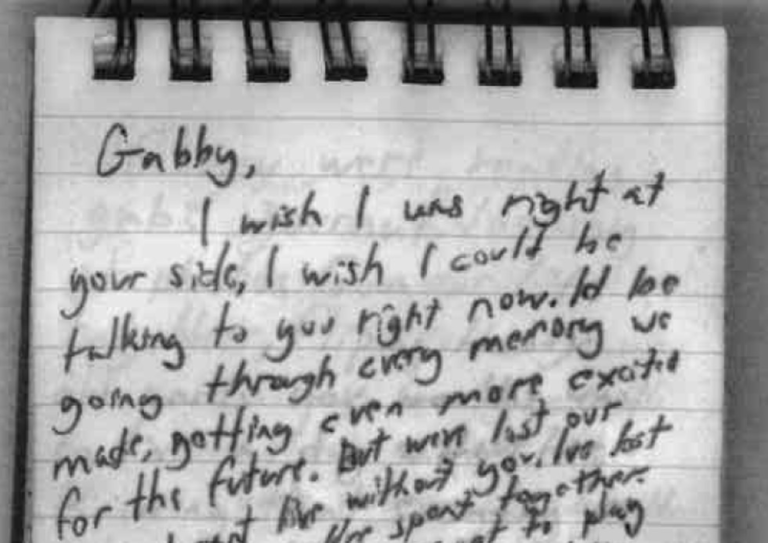 Gabby,
I wish I was right at
your side, I wish I could be
talking to you right now. Id be
going through every memory we
made, getting even more excited
for the future. But were lost our
cant live without you. Ive lost
spent together.
to play